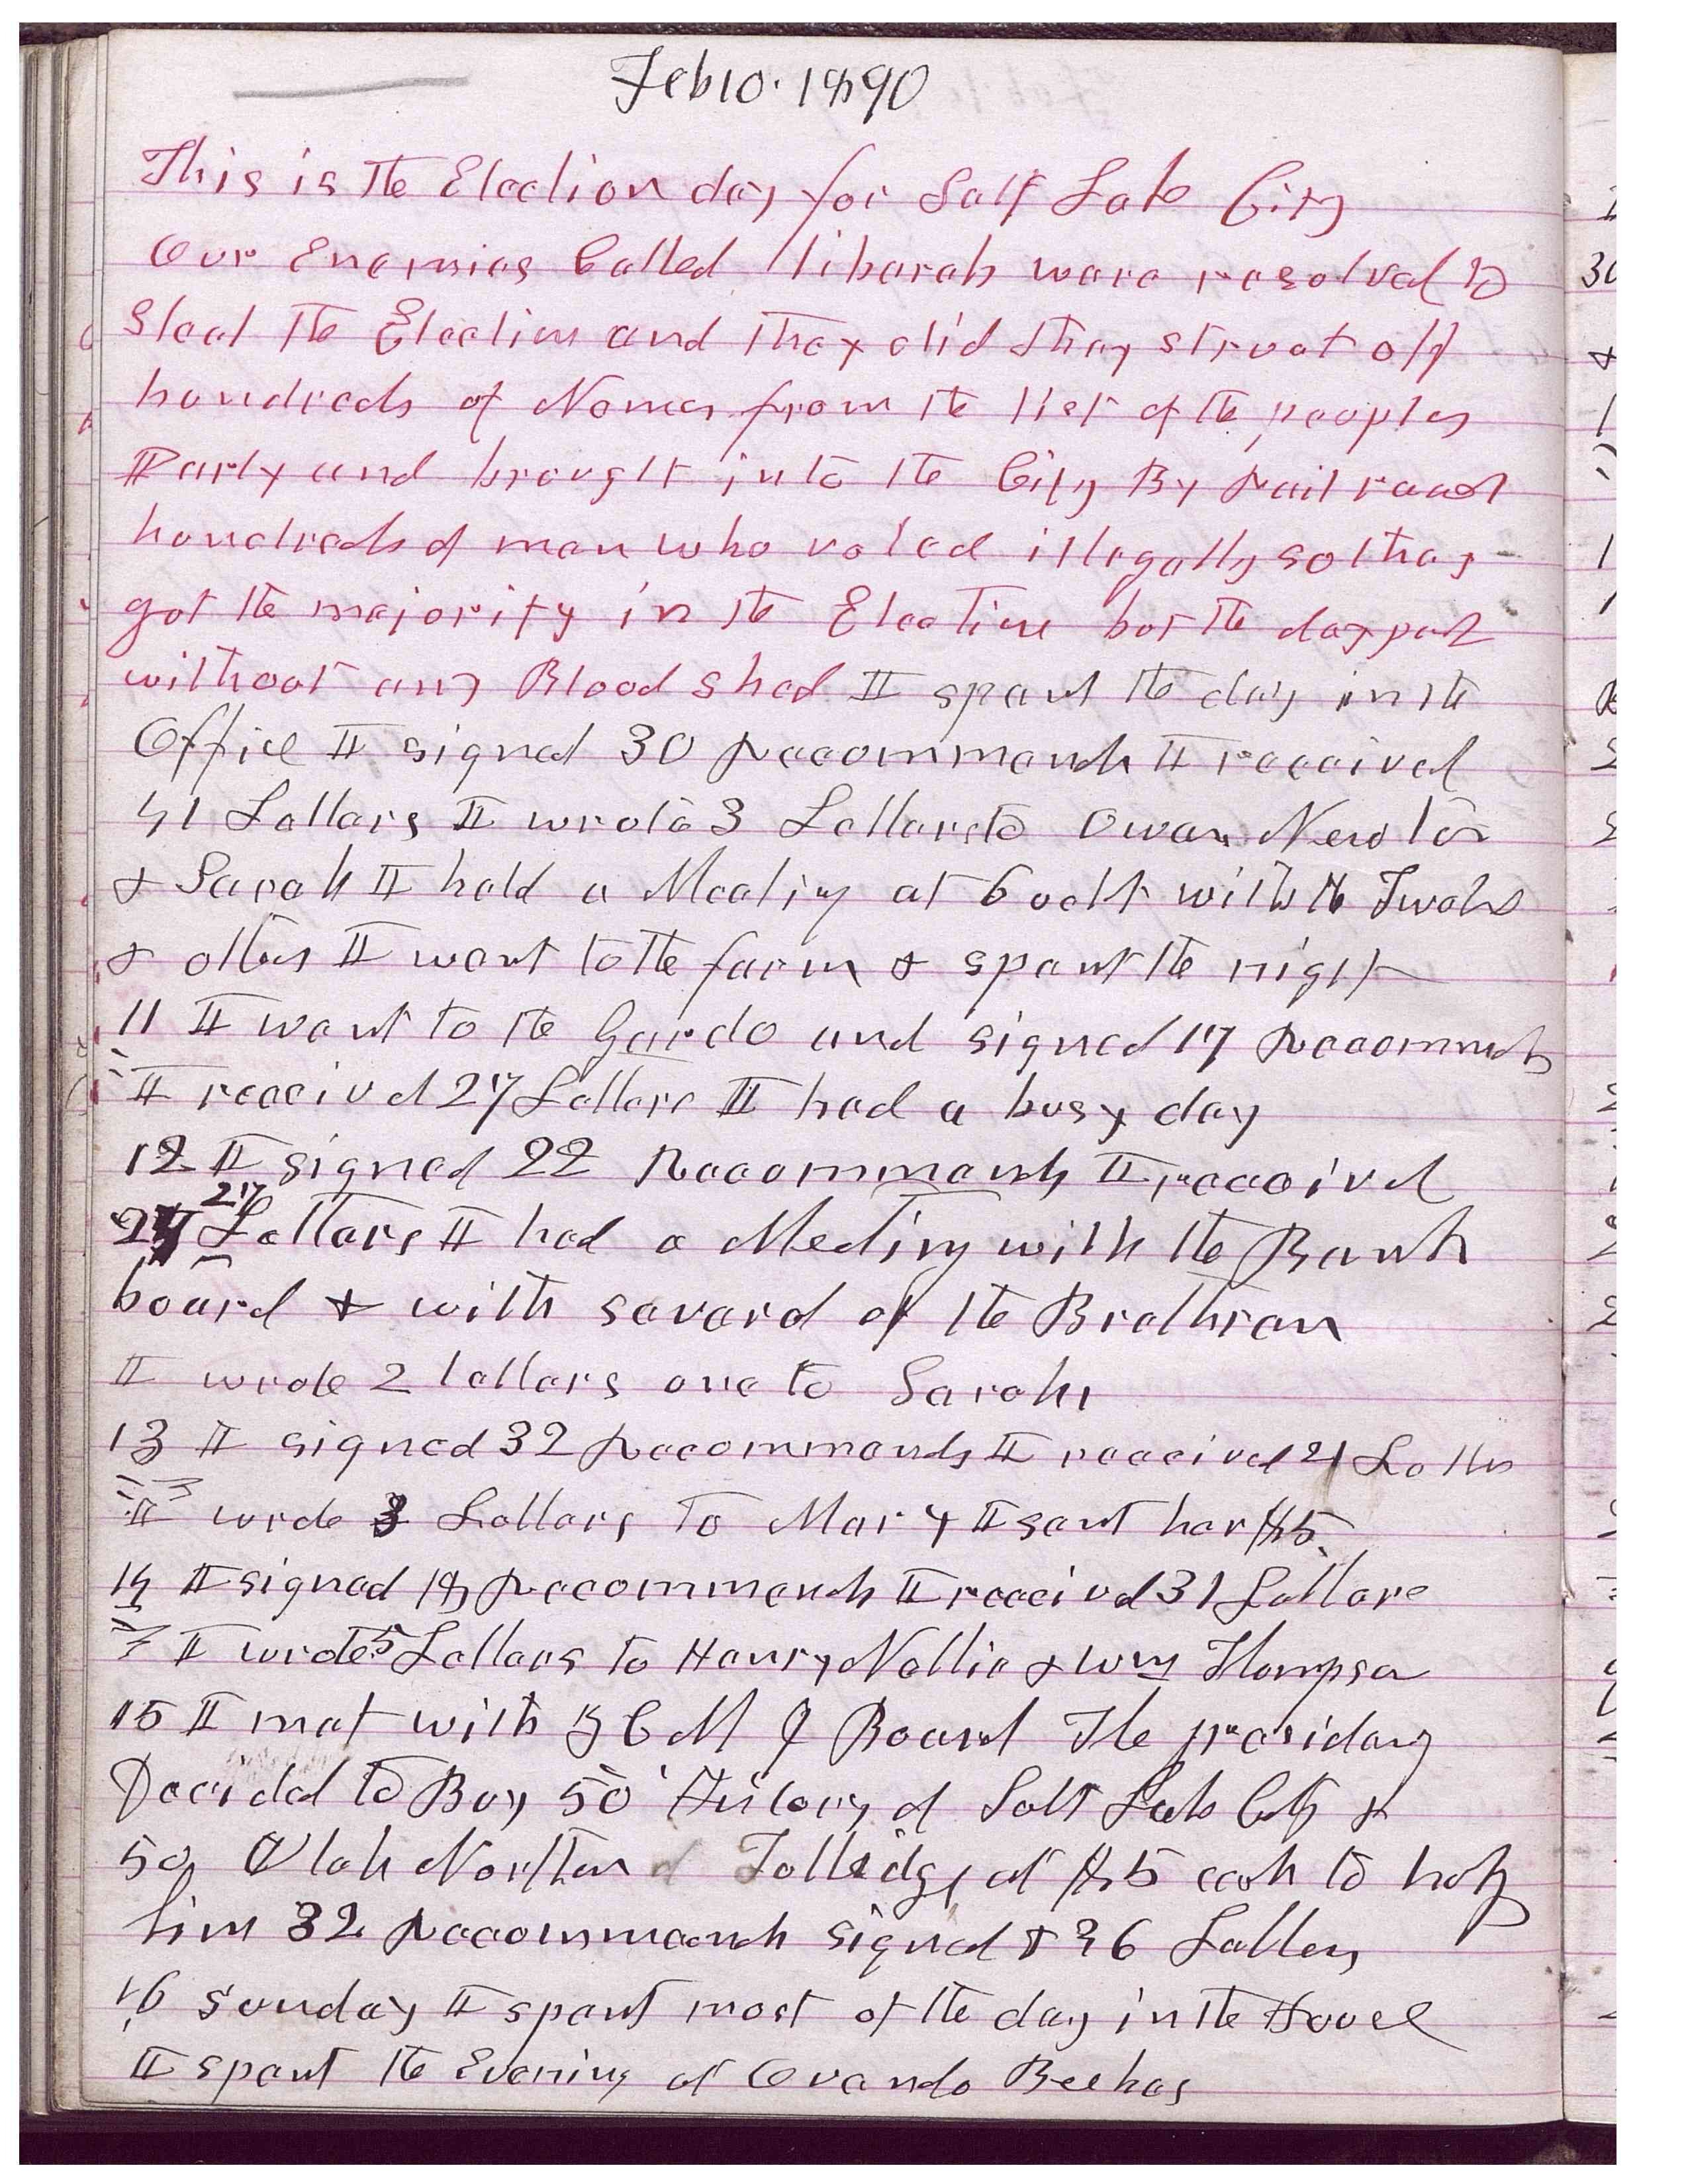 Feb 10. 1890
This is the Election day for Salt Lake City
Our Enemies Called liberals were resolved to
Steal the Election and they did they struct off
hundreds of Names from the list of the peoples
Party and brought into the City By Rail road
hundreds of men who voted illegally so they
got the majority in the Election but the day past
without any Blood shed I spent the day in the
Office I signed 30 Recommends I received
41 Letters I wrote 3 Letters to Owen Newton
& Sarah I held a Meeting at 6 oclk with the Twelve
& others I went to the farm & spent the night
11 I went to the Gardo and signed 17 Recommends
I received 27 Letters I had a busy day
12 I signed 22 Recommends I received
27 Letters I had a Meeting with the Bank
board & with severel of the Brethren
I wrote 2 letters one to Sarah
13 I signed 32 Recommends I received 21 Letters
I wrote 3 Letters to Mary I sent her $5.
14 I signed 18 Recommends I received 31 Letters
I wrote 5 Letters to Henry Nellie & Wm Thompson
15 I met with Z C M I Board The presidency
Decided to Buy 50 History of Salt Lake City &
50 Utah Northern of Tullidge at $5 each to help
him 32 Recommends signed & 36 Letters
16 Sunday I spent most of the day in the House
I spent the Evening at Ovando Beebes